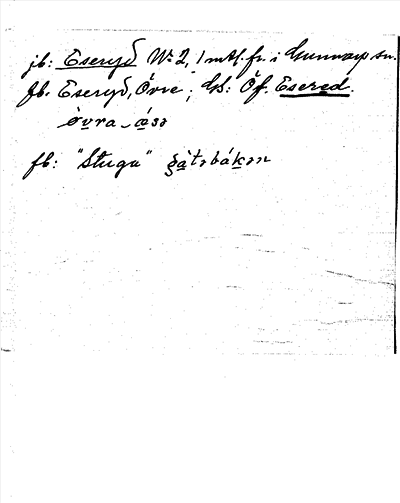 jb: Eseryd No 2, 1 mtl. fr. i Gunnarp sn.
fb. Eseryd, Övre ; GS: Öf. Esered.
òvra - æsə
fb: "Stuga" gàtəbákən